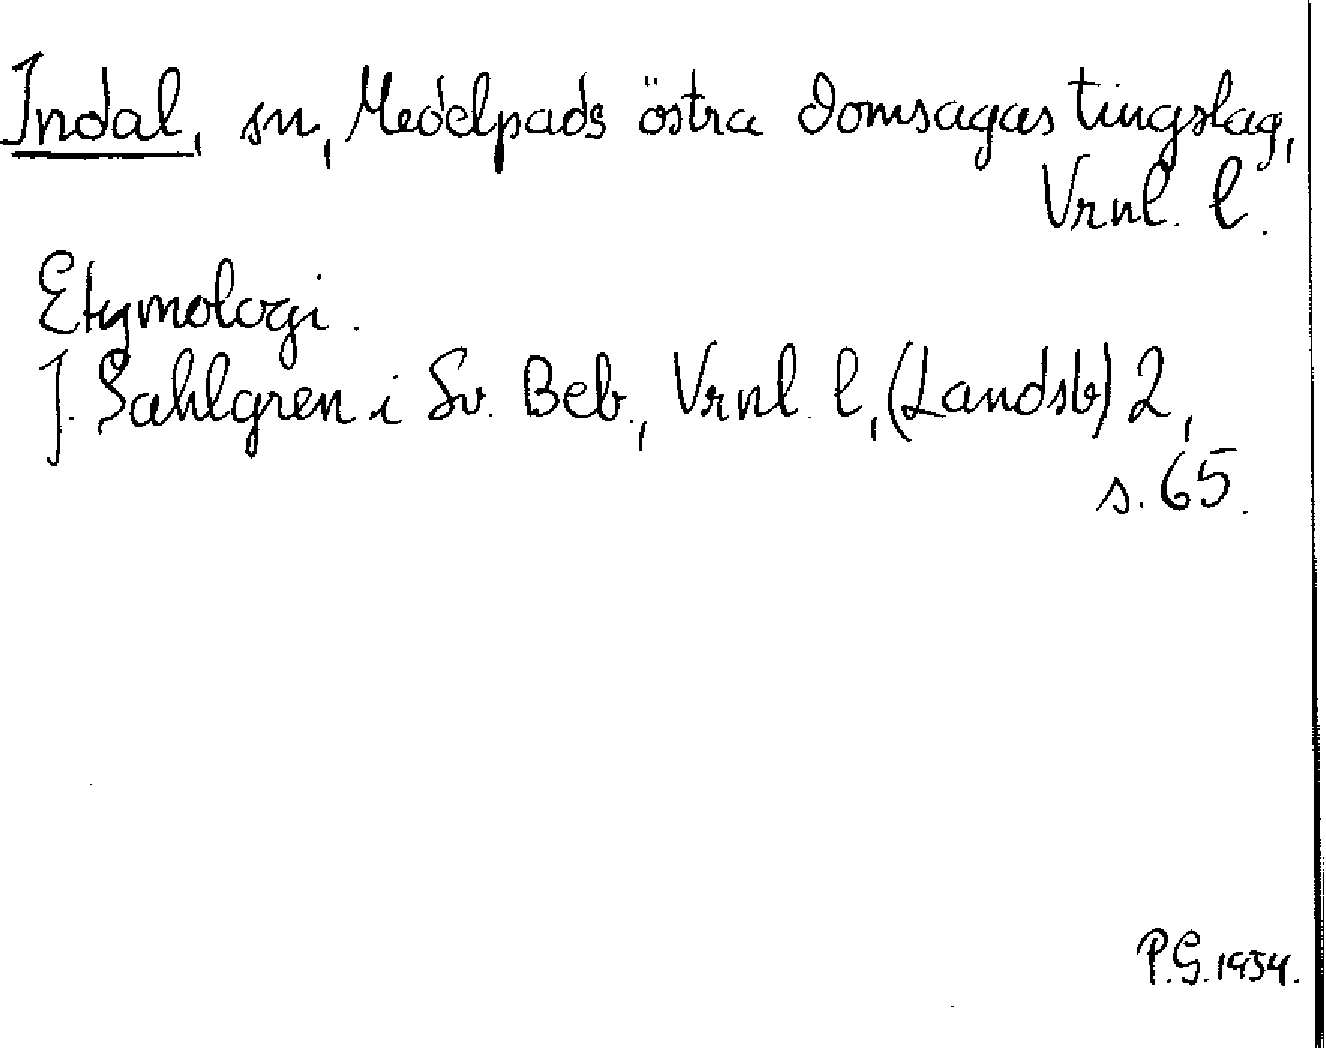 Indal, sn, Medelpads östra domsagas tingslag,
Vrnl. l.
Etymologi.
J. Sahlgren i Sv. Beb., Vrnl. l, (Landsb) 2,
s. 65.
P.G. 1954.